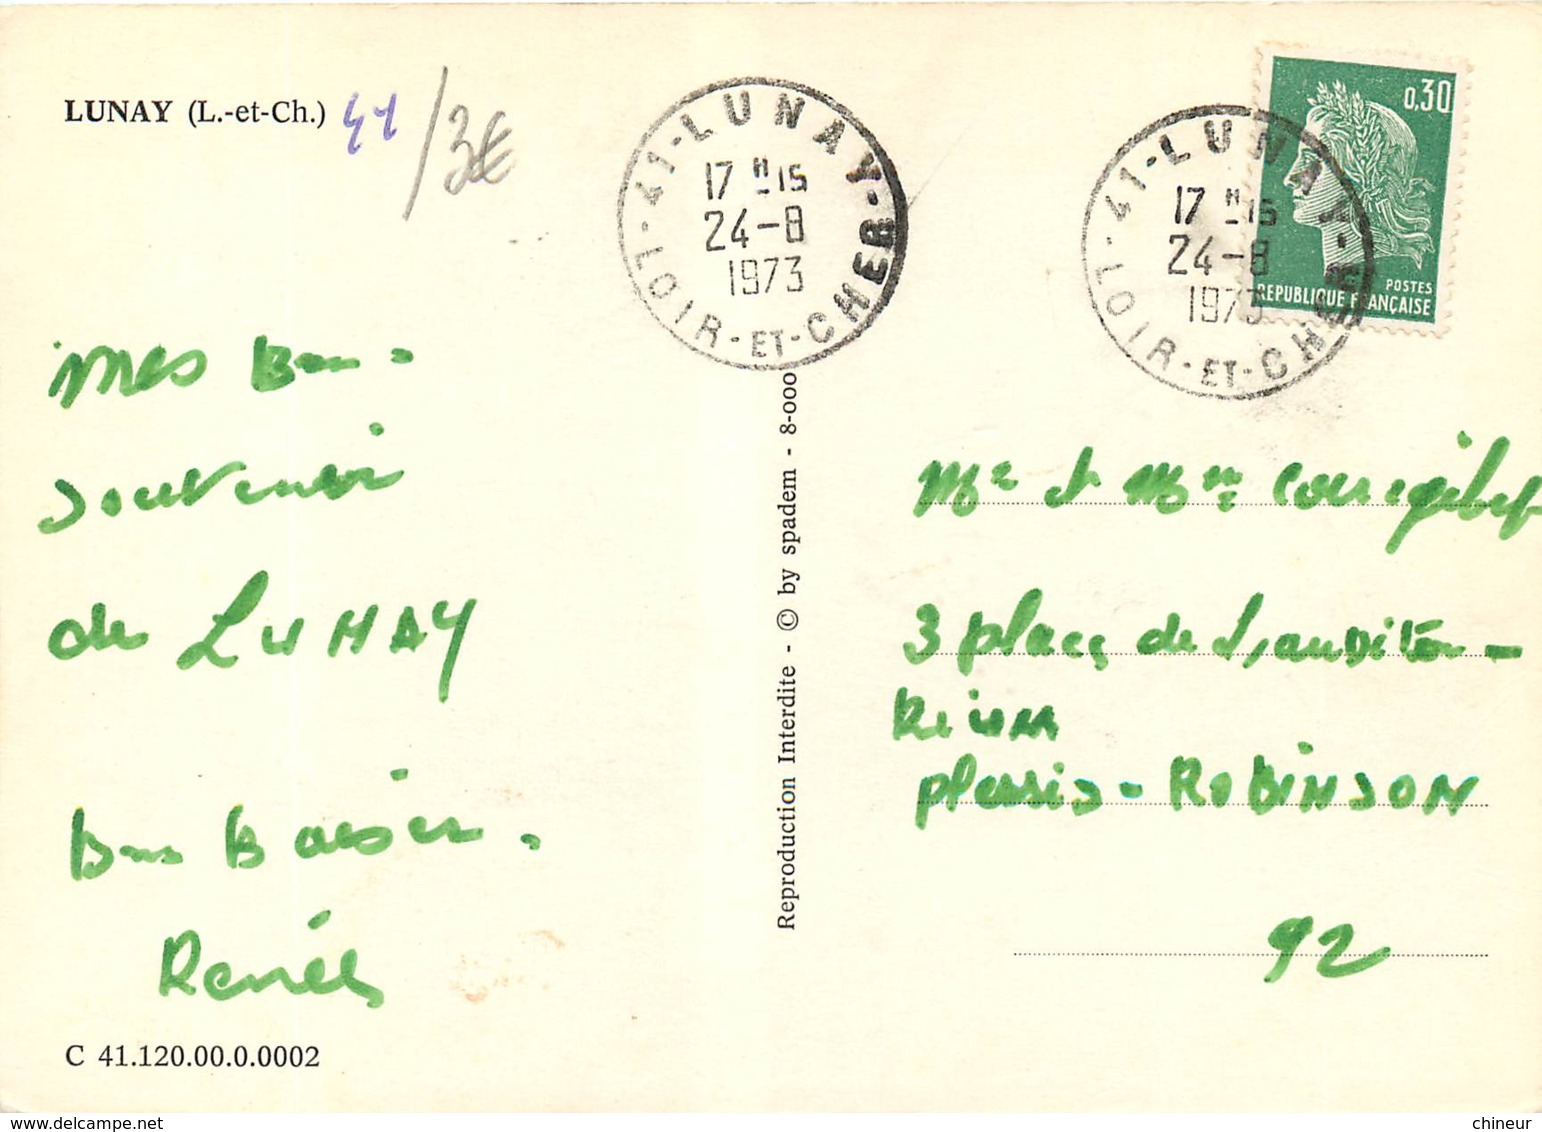 LUNAY (L.-et-Ch.) 41 /3€
41-LUNAY-LOIR-ET-CHER
17 H 15
24-8
1973
41-LUNAY-LOIR-ET-CHER
17 H 15
24-8
1973
0,30
POSTES
REPUBLIQUE FRANÇAISE
mes Bon.
souvenir
de LUNAY
Bon Baiser.
Renée
C 41.120.00.0.0002
Reproduction Interdite - © by spadem - 8-000
Mr et Mme
3 place de
plessis-ROBINSON
92
chineur